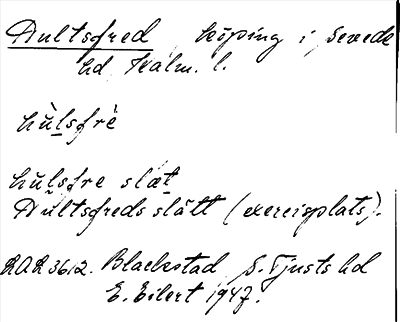 Hultsfred köping i Sevede
hd Kalm. l.
hùlsfrè
hulsfre slæt
Hultsfreds slätt (exercisplats).
RAÄ 3612. Blackstad S. Tjusts hd
E. Eilert 1947.